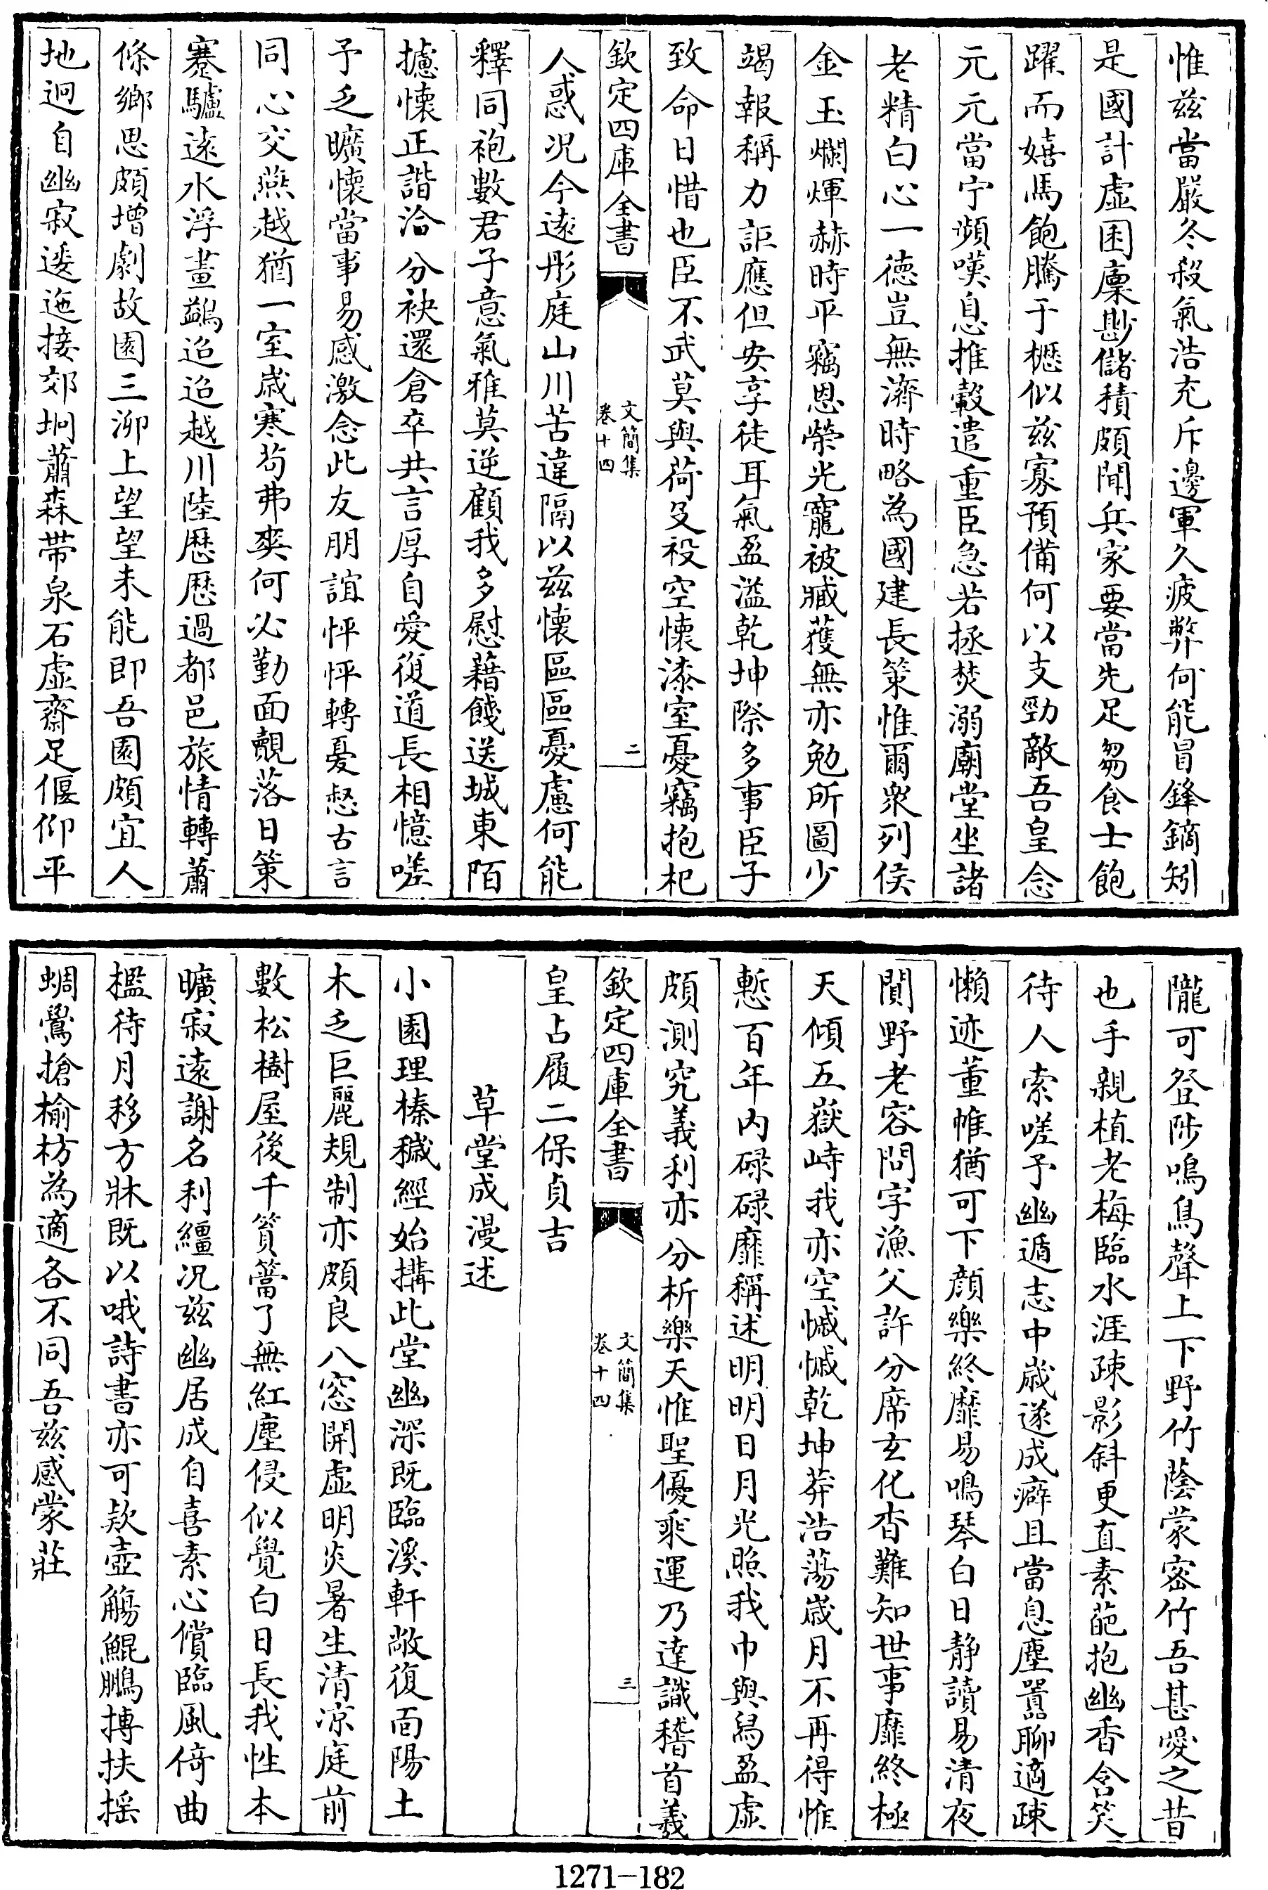 惟兹當嚴冬殺氣浩充斥邊軍久疲弊何能冒鋒鏑矧
是國計虛困廩尠儲積頗聞兵家要當先足芻食士飽
躍而嬉馬飽騰于櫪似兹寡預備何以支勁敵吾皇念
元元當宁頻嘆息推轂遣重臣急若拯焚溺廟堂坐諸
老精白心一德豈無濟時略為國建長策惟爾衆列侯
金玉爛煇赫時平竊恩榮光寵被臧獲無亦勉所圖少
竭報稱力詎應但安享徒耳氣盈溢乾坤際多事臣子
致命日惜也臣不武莫與荷殳祋空懷漆室憂竊抱杞
欽定四庫全書
文簡集
卷十四
二
人惑况今遠彤庭山川苦違隔以兹懷區區憂慮何能
釋同袍數君子意氣雅莫逆顧我多慰藉餞送城東陌
攄懷正諧洽分袂還倉卒共言厚自愛復道長相憶嗟
予乏曠懷當事易感激念此友朋誼怦怦轉憂惄古言
同心交燕越猶一室歲寒苟弗爽何必勤面覿落日策
蹇驢遠水浮畫鷁迢迢越川陸歴歴過都邑旅情轉蕭
條鄉思頗增劇故園三泖上望望未能即吾園頗宜人
地迥自幽寂逶迤接郊坰蕭森帶泉石虛齋足偃仰平
隴可登陟鳴鳥聲上下野竹蔭蒙密竹吾甚愛之昔
也手親植老梅臨水涯疎影斜更直素葩抱幽香含笑
待人索嗟予幽遁志中歲遂成癖且當息塵囂聊適疎
懶迹董帷猶可下顔樂終靡易鳴琴白日静讀易清夜
闃野老容問字漁父許分席玄化杳難知世事靡終極
天傾五嶽峙我亦空慽慽乾坤莽浩蕩歲月不再得惟
慙百年内碌碌靡稱述明明日月光照我巾與舄盈虛
頗測究義利亦分析樂天惟聖優乘運乃達識稽首羲
欽定四庫全書
文簡集
卷十四
三
皇占履二保貞吉
草堂成漫述
小園理榛穢經始搆此堂幽深既臨溪軒敞復面陽土
木乏巨麗規制亦頗良八窓開虛明炎暑生清凉庭前
數松樹屋後千篔簹了無紅塵侵似覺白日長我性本
曠寂遠謝名利繮况兹幽居成自喜素心償臨風倚曲
檻待月移方牀既以哦詩書亦可欵壺觴鯤鵬摶扶摇
蜩鷽搶榆枋為適各不同吾兹感蒙莊
1271-182